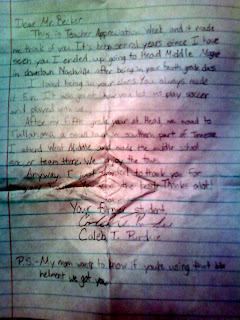 Dear Mr. Becker,
This is Teacher Appreciation Week, and it made
me think of you. It's been several years since I have
seen you. I ended up going to Head Middle Magnet
in downtown Nashville after being in your fourth grade class.
I loved being in your class. You always made
it fun. It was great how you let me play soccer
and played with us.
After my fifth grade year at Head, we moved to
Tullahoma, a small town in southern part of Tennessee.
I attend West Middle and made the middle school
soccer team there. We enjoy the town.
Anyway, I just wanted to thank you for
the best. Thanks alot!
Your former student,
Caleb T. Purdue
Caleb T. Purdue
P.S. - My mom wants to know if you're using that bike
helmet we got you.